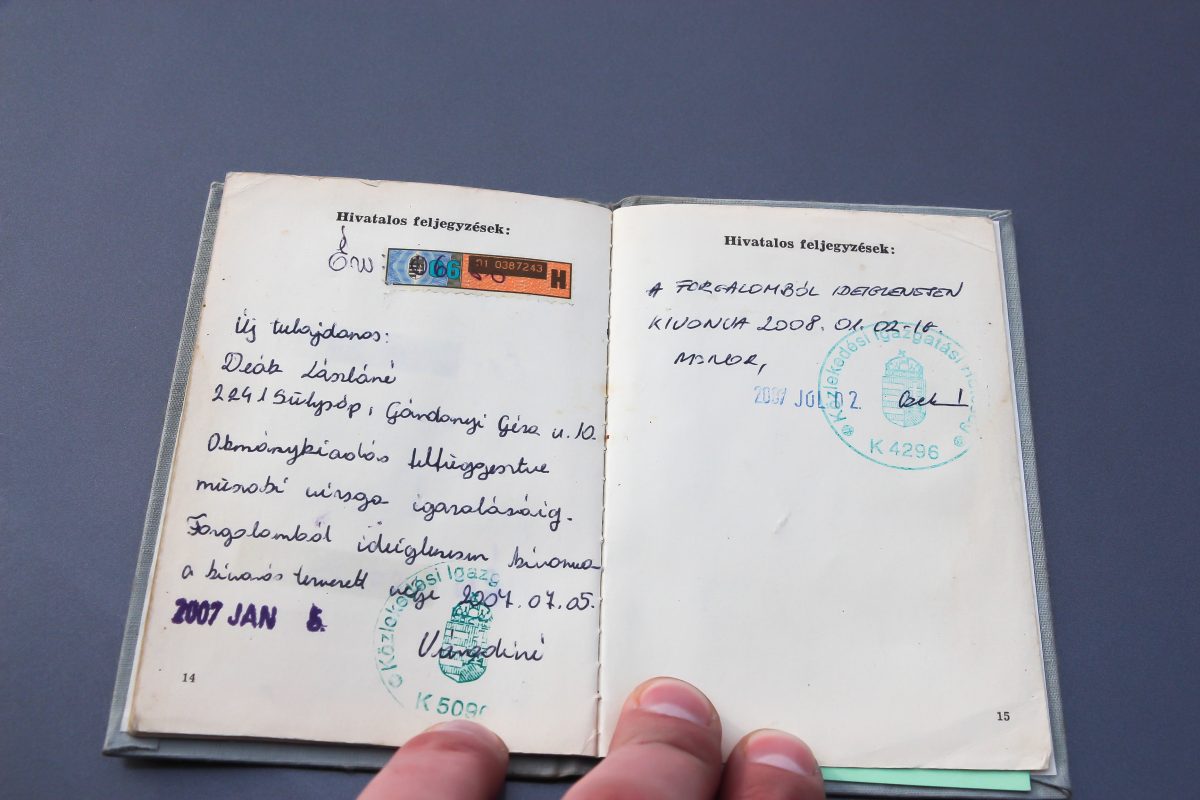 Hivatalos feljegyzések:
Év:
01 0387243
H
Új tulajdonos:
Deák Lászlóné
2241 Sülysáp, Gárdonyi Géza u. 10.
Okmánykiadás felfüggesztve
műszaki vizsga igazolásáig.
Forgalomból ideiglenesen kivonva
a kivonás tervezett vége 2007.07.05.
2007 JAN 5.
Közlekedési Igazg
K 509
14
Hivatalos feljegyzések:
A FORGALOMBÓL IDEIGLENESEN
KIVONVA 2008. 01. 02-IG.
MONOR,
2007 JÚL 02.
Közlekedési Igazgatási
K 4296
15